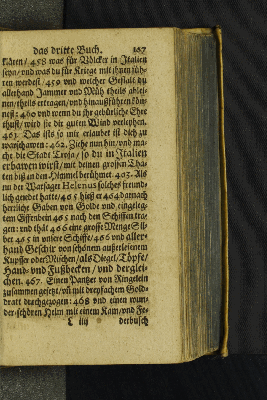 das dritte Buch. 107
klären / 458 was für Völcker in Italien
seyn / vnd was du für Kriege mit ihnen füh-
ren werdest / 459 vnd welcher Gestalt du
allerhand Jammer vnd Müh theils ablei-
nen / theils ertragen / vnd hinaußführen kön-
nest: 460 vnd wenn du ihr gebürliche Ehre
thust / wird sie dir guten Wind verleyhen.
461. Das ists so mir erlaubet ist dich zu
warschawen: 462. Ziehe nun hin / vnd ma-
che die Stadt Troja / so du in Italien
erbawen wirst / mit deinen grossen Tha-
ten biß an den Himmel berühmet. 463. Als
nu der Warsager Helenus solches freund-
lich geredet hatte / 465 hieß er 464 darnach
herrliche Gaben von Golde vnd eingeleg-
tem Elffenbein 465 nach den Schiffen tra-
gen: vnd thät 466 eine grosse Menge Sil-
ber 465 in vnsere Schiffe / 466 vnd aller-
hand Geschir von schönem außerlesenem
Kupffer oder Müschen / als Diegel / Töpfe /
Hand- vnd Fußbecken / vnd dergleí-
chen. 467. Einen Pantzer von Ringelein
zusammen gesetzt / vñ mit dreyfachem Gold-
dratt durchgezogen: 468 vnd einen wun-
der-schönen Helm mit einem Kam / vnd Fe-
L iiij derbusch